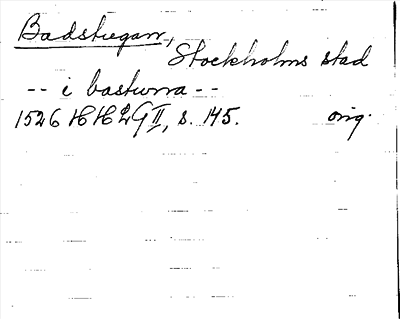 Badstugan,
Stockholms stad
-- i bastwra --
1526 HH2G II, s. 145. orig.